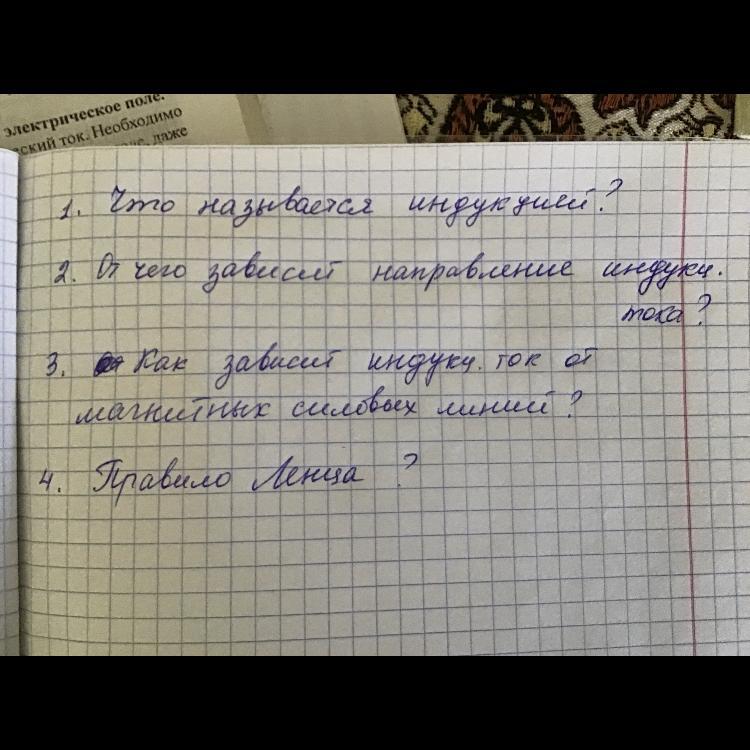 электрическое поле.
ский ток. Необходимо
даже
1. Что называется индукцией?
2. От чего зависит направление индукц.
тока?
3. Как зависит индукц. ток от
магнитных силовых линий?
4. Правило Ленца ?